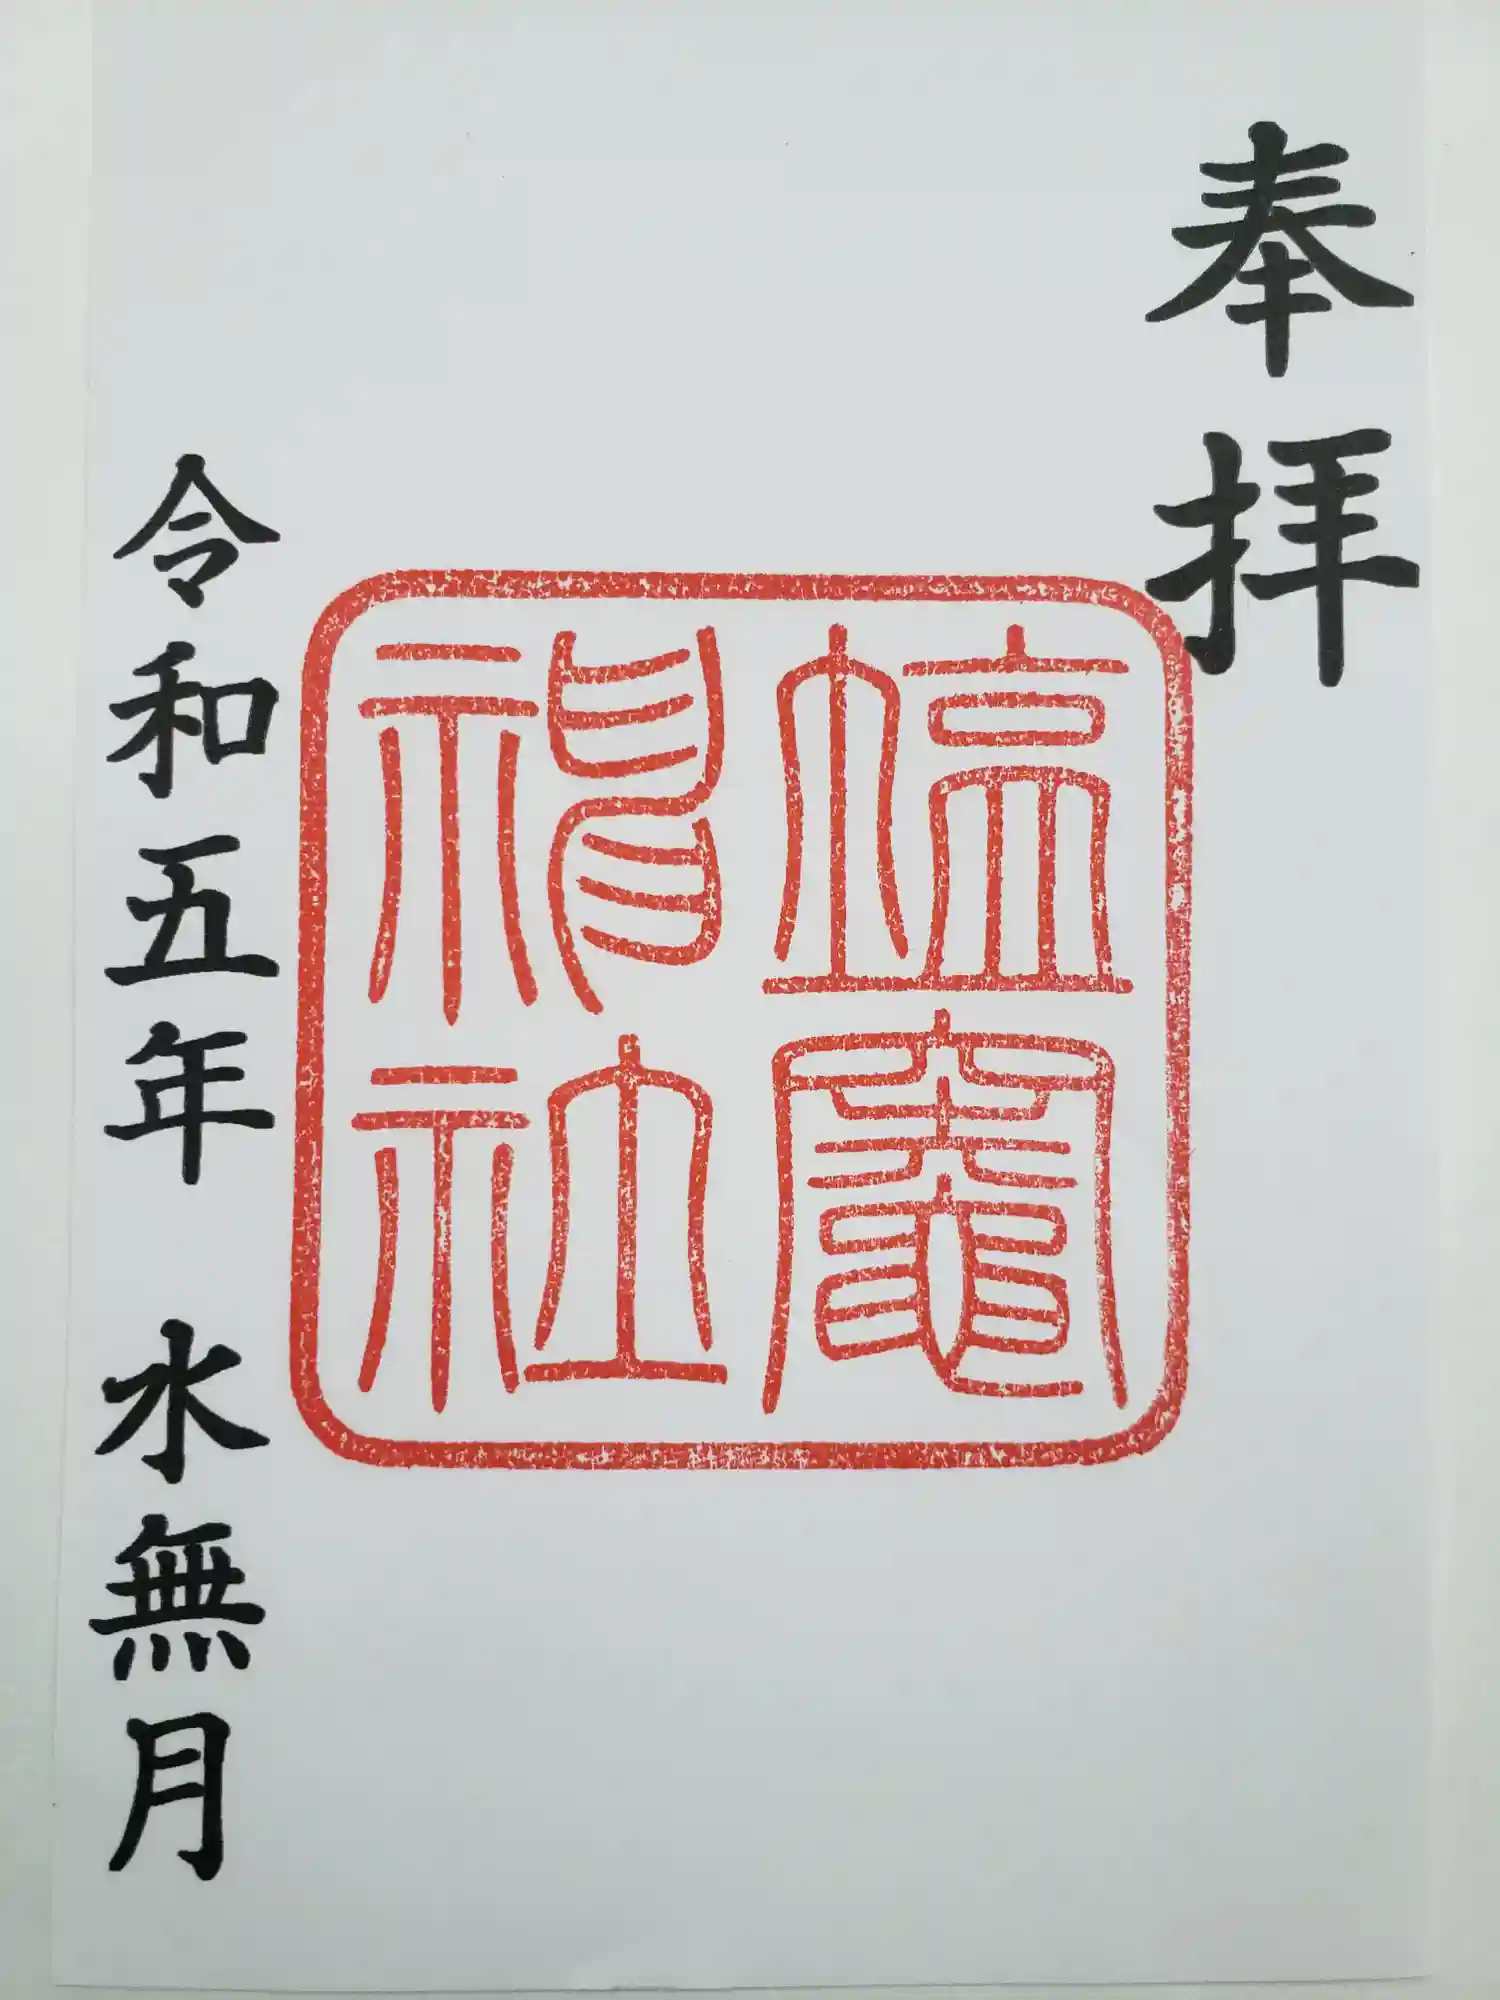 奉拝
塩竈
神社
令和五年 水無月